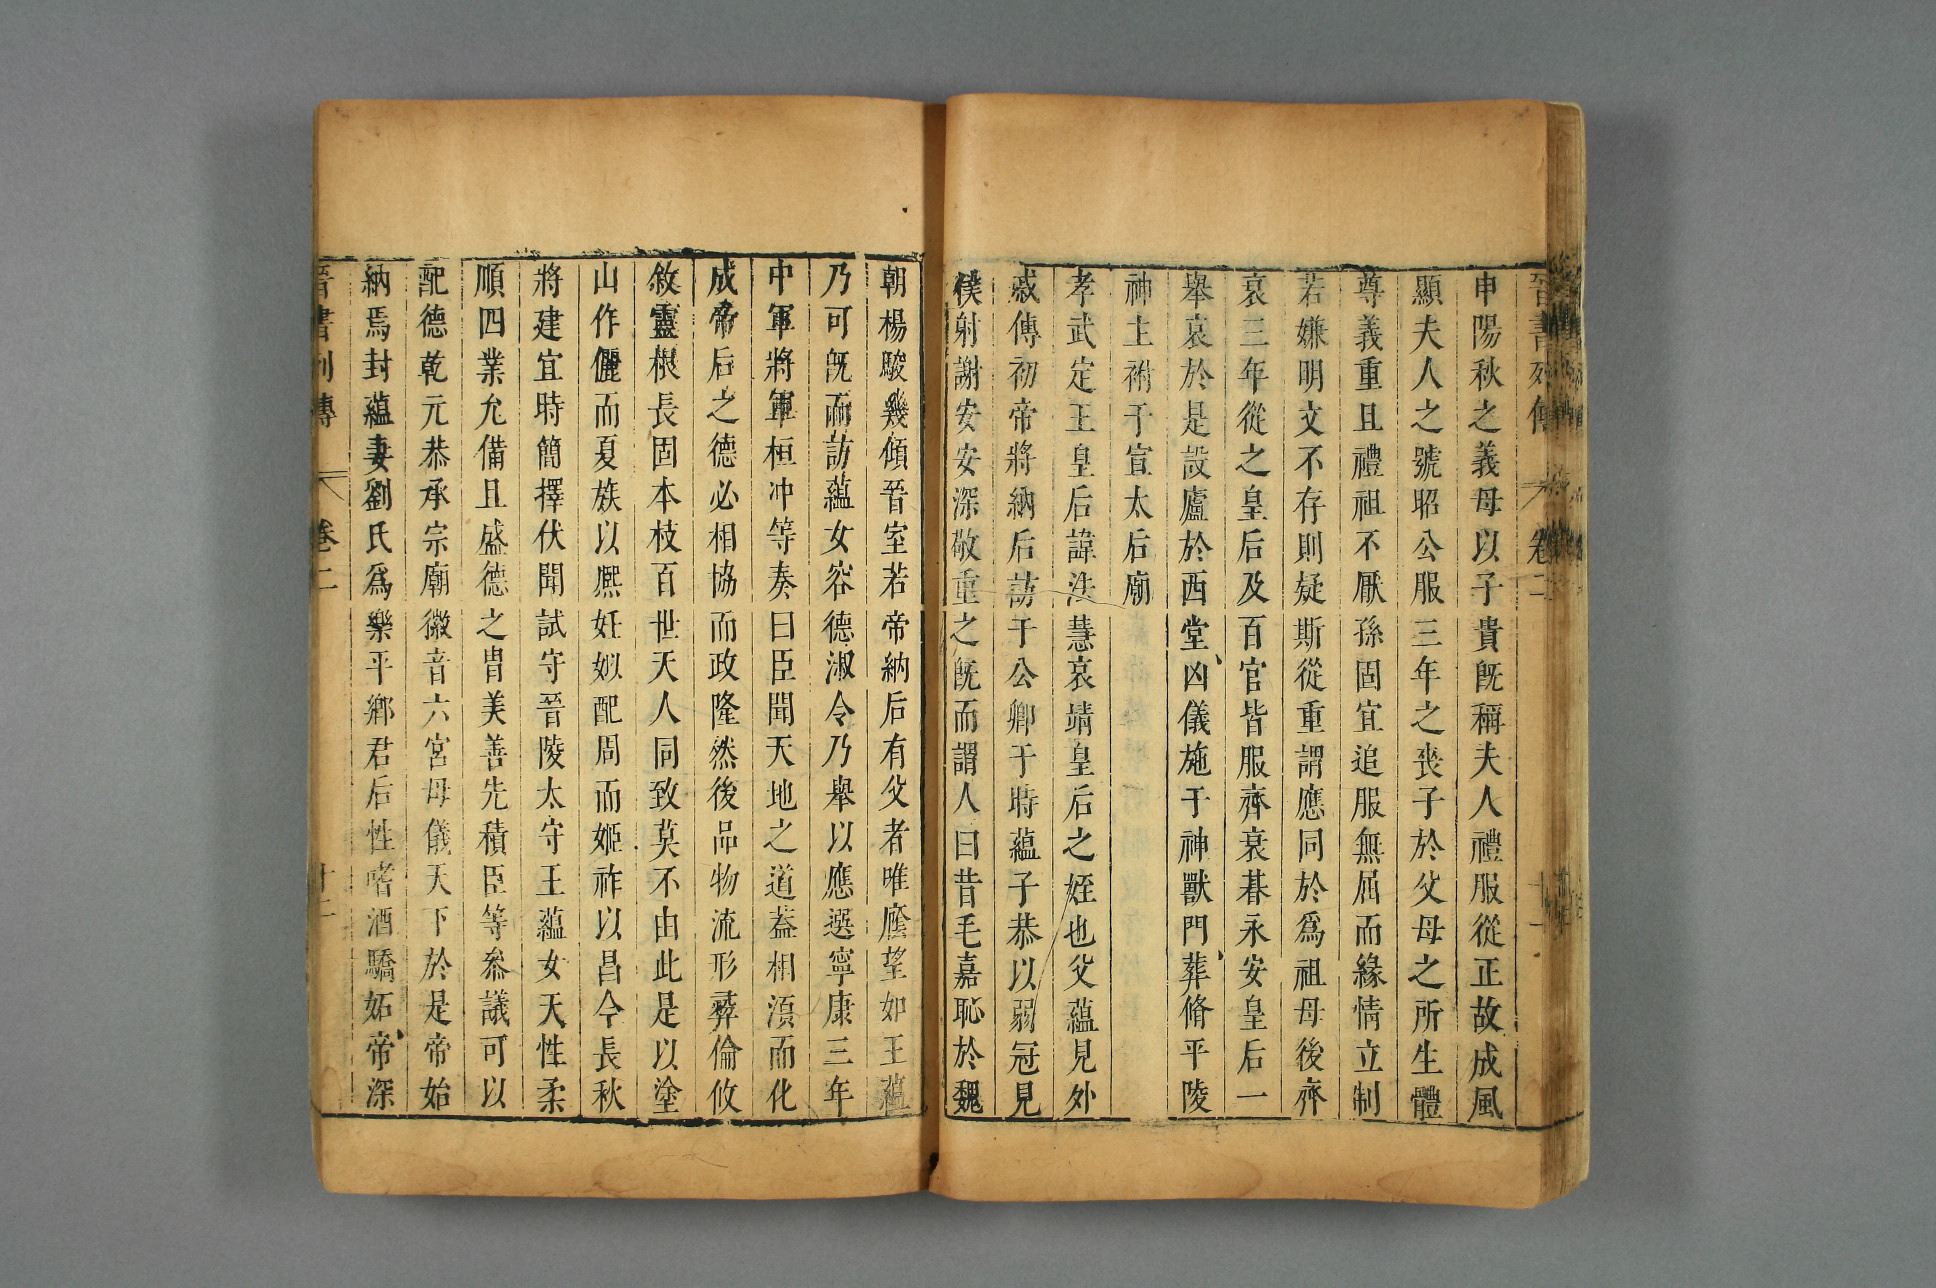 晉書列傳 卷二
申陽秋之義母以子貴旣稱夫人禮服從正故成風
顯夫人之號昭公服三年之喪子於父母之所生體
尊義重且禮祖不厭孫固宜追服無屈而緣情立制
若嫌明文不存則疑斯從重謂應同於爲祖母後齊
衰三年從之皇后及百官皆服齊衰朞永安皇后一
舉哀於是設廬於西堂凶儀施于神獸門葬脩平陵
神主祔于宣太后廟
孝武定王皇后諱法慧哀靖皇后之姪也父蘊見外
戚傳初帝將納后訪于公卿于時蘊子恭以弱冠見
僕射謝安安深敬重之旣而謂人曰昔毛嘉恥於魏
朝楊駿幾傾晉室若帝納后有父者唯廕望如王蘊
乃可旣而訪蘊女容德淑令乃舉以應選寧康三年
中軍將軍桓冲等奏曰臣聞天地之道蓋相湏而化
成帝后之德必相協而政隆然後品物流形彝倫攸
敘靈根長固本枝百世天人同致莫不由此是以塗
山作儷而夏族以熈妊姒配周而姬祚以昌今長秋
將建宜時簡擇伏聞試守晉陵太守王蘊女天性柔
順四業允備且盛德之冑美善先積臣等參議可以
配德乾元恭承宗廟徽音六宮母儀天下於是帝始
納焉封蘊妻劉氏爲樂平鄉君后性嗜酒驕妬帝深
晉書列傳 卷二 十二